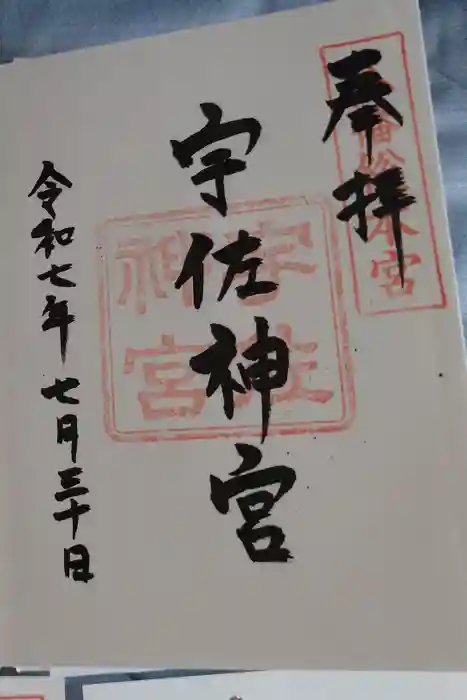 奉拝
八幡総本宮
宇佐神宮
宇佐神宮
令和七年七月三十日